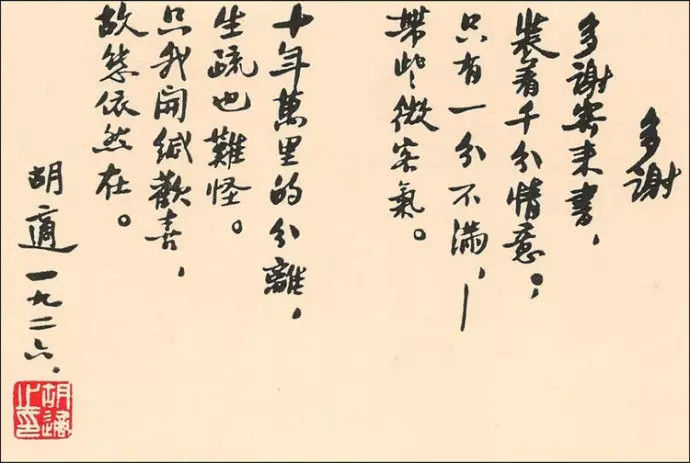 多謝
多謝寄来書，
裝着千分情意；
只有一分不滿，—
帶些微客氣。
十年萬里的分離，
生疏也難怪。
只我開緘歡喜，
故態依然在。
胡適 一九二六．
胡適之印